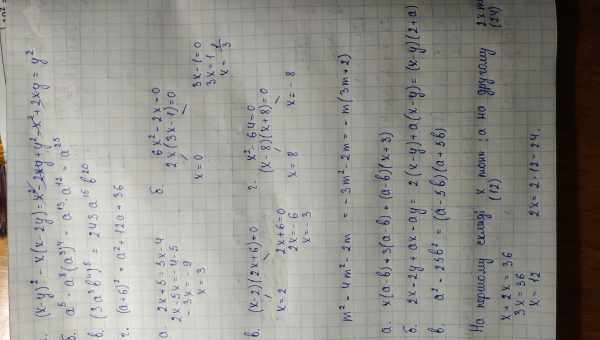 (x-y)² - x(x-2y) = x² - 2xy + y² - x² + 2xy = y²
б.
в. (3a³b⁴)⁵ = 243a¹⁵b²⁰
г. (a+6)² = a² + 12a + 36
а. 2x+5=5x-4
2x-5x=-4-5
-3x=-9
x=3
б. 6x²-2x=0
2x(3x-1)=0
x=0
3x-1=0
3x=1
x=1/3
в. (x-2)(2x+6)=0
x=2
2x+6=0
2x=-6
x=-3
г. x²-64=0
(x-8)(x+8)=0
x=8
x=-8
m² - 4m² - 2m = -3m² - 2m = -m(3m+2)
а. x(a-b)+3(a-b)=(a-b)(x+3)
б. 2x-2y+ax-ay = 2(x-y)+a(x-y)=(x-y)(2+a)
в. a² - 25b² = (a-5b)(a+5b)
На першому складі x тонн : а на другому 2x
(12) (24)
x+2x=36
3x=36
x=12
2x=2·12=24.